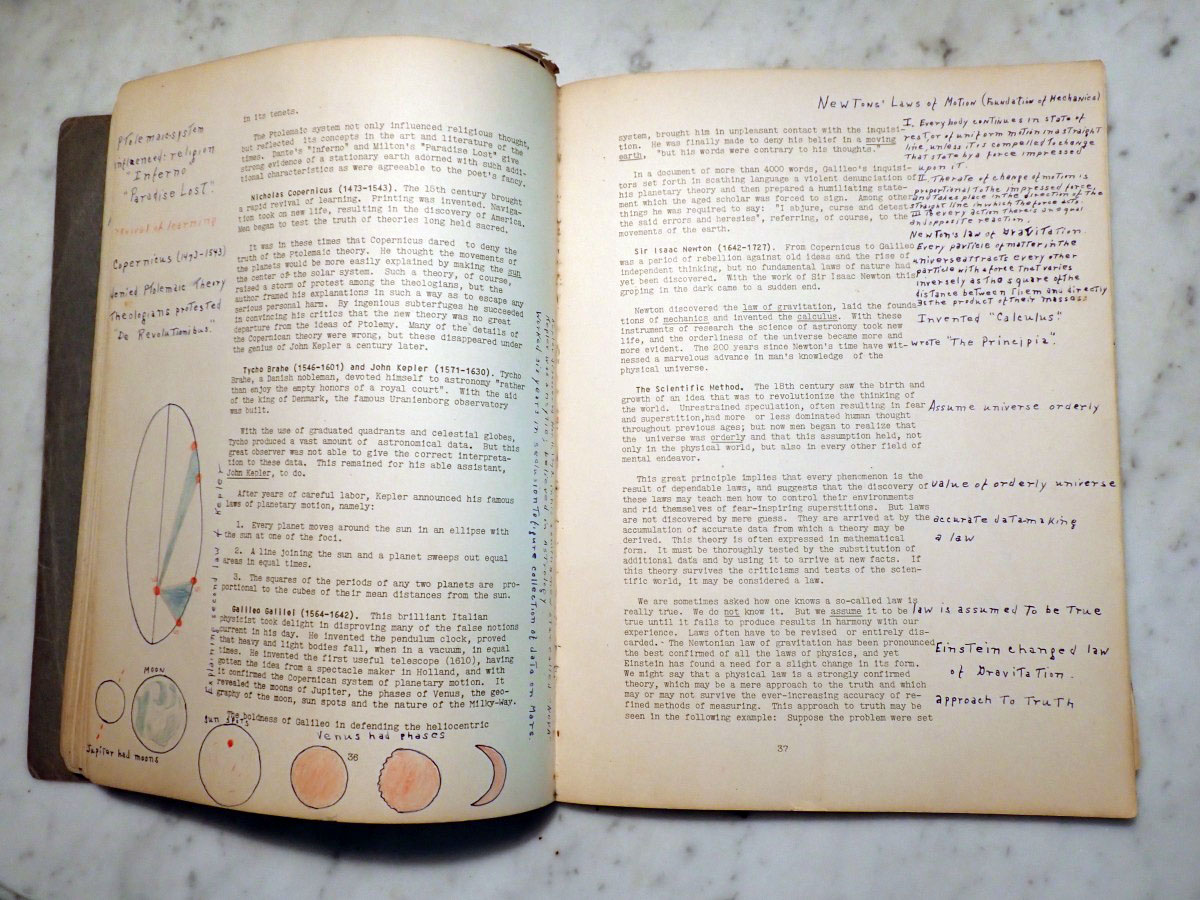 in its tenets.
The Ptolemaic system not only influenced religious thought,
but reflected its concepts in the art and literature of the
times. Dante's "Inferno" and Milton's "Paradise Lost" give
strong evidence of a stationary earth adorned with such addi-
tional characteristics as were agreeable to the poet's fancy.
Nicholas Copernicus (1473-1543). The 15th century brought
a rapid revival of learning. Printing was invented. Naviga-
tion took on new life, resulting in the discovery of America.
Men began to test the truth of theories long held sacred.
It was in these times that Copernicus dared to deny the
truth of the Ptolemaic theory. He thought the movements of
the planets would be more easily explained by making the sun
the center of the solar system. Such a theory, of course,
raised a storm of protest among the theologians, but the
author framed his explanations in such a way as to escape any
serious personal harm. By ingenious subterfuges he succeeded
in convincing his critics that the new theory was no great
departure from the ideas of Ptolemy. Many of the details of
the Copernican theory were wrong, but these disappeared under
the genius of John Kepler a century later.
Tycho Brahe (1546-1601) and John Kepler (1571-1630). Tycho
Brahe, a Danish nobleman, devoted himself to astronomy "rather
than enjoy the empty honors of a royal court". With the aid
of the king of Denmark, the famous Uranienborg observatory
was built.
With the use of graduated quadrants and celestial globes,
Tycho produced a vast amount of astronomical data. But this
great observer was not able to give the correct interpreta-
tion to these data. This remained for his able assistant,
John Kepler, to do.
After years of careful labor, Kepler announced his famous
laws of planetary motion, namely:
1. Every planet moves around the sun in an ellipse with
the sun at one of the foci.
2. A line joining the sun and a planet sweeps out equal
areas in equal times.
3. The squares of the periods of any two planets are pro-
portional to the cubes of their mean distances from the sun.
Galileo Galilei (1564-1642). This brilliant Italian
physicist took delight in disproving many of the false notions
current in his day. He invented the pendulum clock, proved
that heavy and light bodies fall, when in a vacuum, in equal
times. He invented the first useful telescope (1610), having
gotten the idea from a spectacle maker in Holland, and with
it confirmed the Copernican system of planetary motion. It
revealed the moons of Jupiter, the phases of Venus, the geo-
graphy of the moon, sun spots and the nature of the Milky-Way.
The boldness of Galileo in defending the heliocentric
36
Ptolemaic system
influenced: religion
"Inferno
"Paradise Lost"
revival of learning
Copernicus (1473-1543)
denied Ptolemaic Theory
Theologians protested
"De Revolutionibus"
Explaining second law of Kepler
worked six years in seclusion to figure collection of data on Mars.
MOON
Jupiter had moons
Sun spots
Venus had phases
Newtons' Laws of Motion (Foundation of Mechanics)
system, brought him in unpleasant contact with the inquisi-
tion. He was finally made to deny his belief in a moving
earth, "but his words were contrary to his thoughts."
In a document of more than 4000 words, Galileo's inquisi-
tors set forth in scathing language a violent denunciation of
his planetary theory and then prepared a humiliating state-
ment which the aged scholar was forced to sign. Among other
things he was required to say: "I abjure, curse and detest
the said errors and heresies", referring, of course, to the
movements of the earth.
Sir Isaac Newton (1642-1727). From Copernicus to Galileo
was a period of rebellion against old ideas and the rise of
independent thinking, but no fundamental laws of nature had
yet been discovered. With the work of Sir Isaac Newton this
groping in the dark came to a sudden end.
Newton discovered the law of gravitation, laid the founda-
tions of mechanics and invented the calculus. With these
instruments of research the science of astronomy took new
life, and the orderliness of the universe became more and
more evident. The 200 years since Newton's time have wit-
nessed a marvelous advance in man's knowledge of the
physical universe.
The Scientific Method. The 18th century saw the birth and
growth of an idea that was to revolutionize the thinking of
the world. Unrestrained speculation, often resulting in fear
and superstition, had more or less dominated human thought
throughout previous ages; but now men began to realize that
the universe was orderly and that this assumption held, not
only in the physical world, but also in every other field of
mental endeavor.
This great principle implies that every phenomenon is the
result of dependable laws, and suggests that the discovery of
these laws may teach men how to control their environments
and rid themselves of fear-inspiring superstitions. But laws
are not discovered by mere guess. They are arrived at by the
accumulation of accurate data from which a theory may be
derived. This theory is often expressed in mathematical
form. It must be thoroughly tested by the substitution of
additional data and by using it to arrive at new facts. If
this theory survives the criticisms and tests of the scien-
tific world, it may be considered a law.
We are sometimes asked how one knows a so-called law is
really true. We do not know it. But we assume it to be
true until it fails to produce results in harmony with our
experience. Laws often have to be revised or entirely dis-
carded. The Newtonian law of gravitation has been pronounced
the best confirmed of all the laws of physics, and yet
Einstein has found a need for a slight change in its form.
We might say that a physical law is a strongly confirmed
theory, which may be a mere approach to the truth and which
may or may not survive the ever-increasing accuracy of re-
fined methods of measuring. This approach to truth may be
seen in the following example: Suppose the problem were set
37
I. Every body continues in state of
rest, or of uniform motion in a straight
line, unless it is compelled to change
that state by a force impressed
upon it.
II. The rate of change of motion is
proportional to the impressed force,
and takes place in the direction of the
straight line in which the force acts.
III To every action there is an equal
and opposite reaction.
Newton's law of Gravitation
Every particle of matter, in the
universe attracts every other
particle with a force that varies
inversely as the square of the
distance between them and directly
as the product of their masses
Invented "Calculus"
wrote "The Principia".
Assume universe orderly
value of orderly universe
accurate data making
a law
law is assumed to be true
Einstein changed law
of Gravitation.
approach to Truth